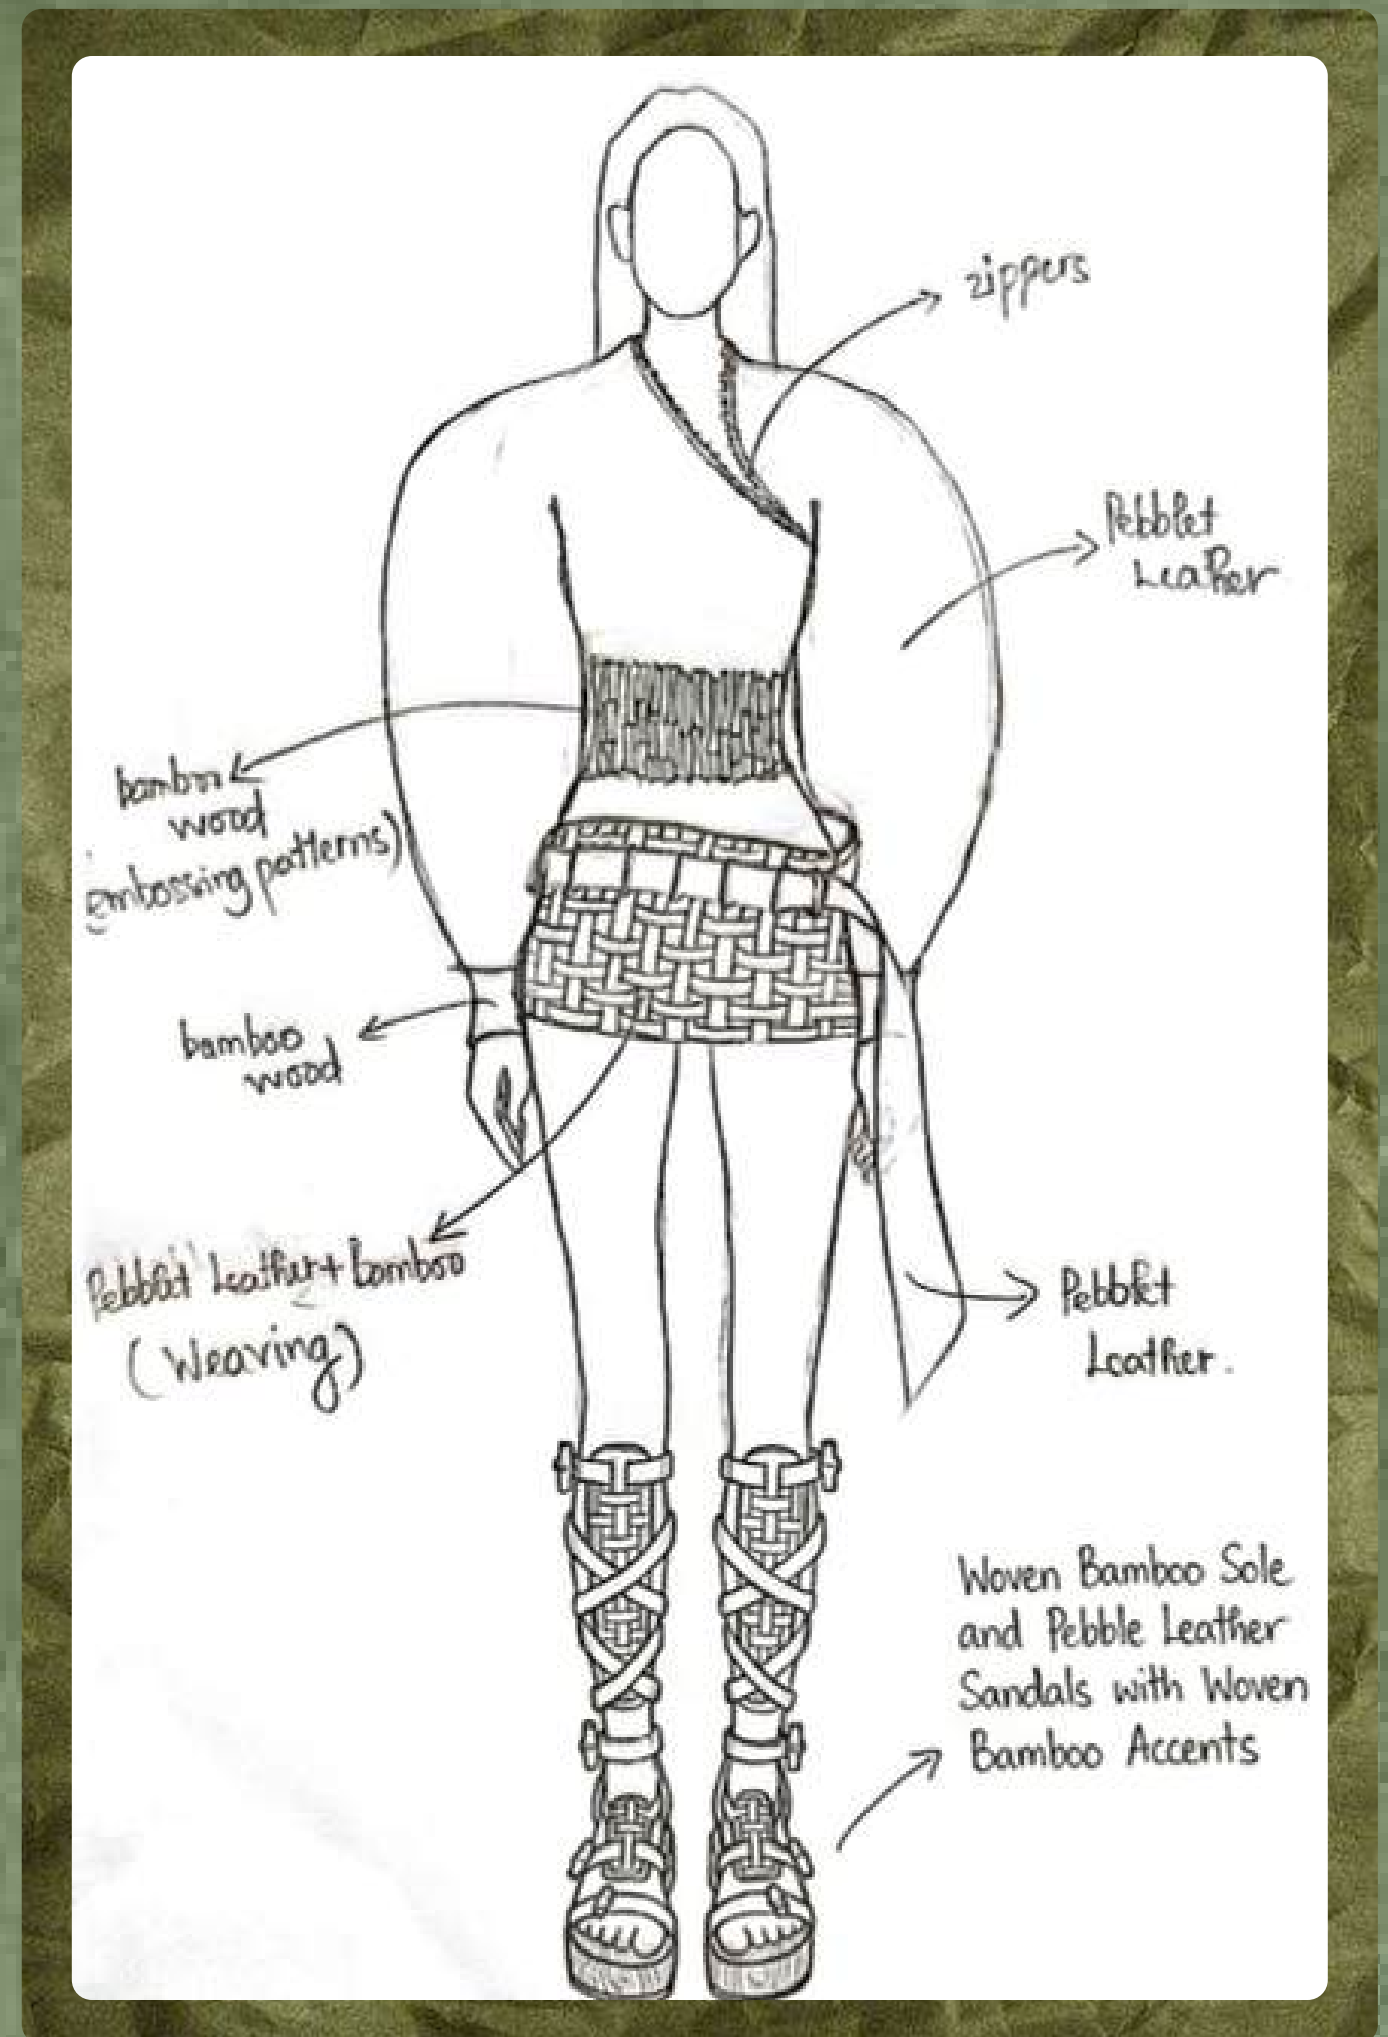 zippers
Pebblet
Leather
bamboo
wood
(embossing patterns)
bamboo
wood
Pebblet Leather + bamboo
(Weaving)
Pebblet
Leather.
Woven Bamboo Sole
and Pebble Leather
Sandals with Woven
Bamboo Accents